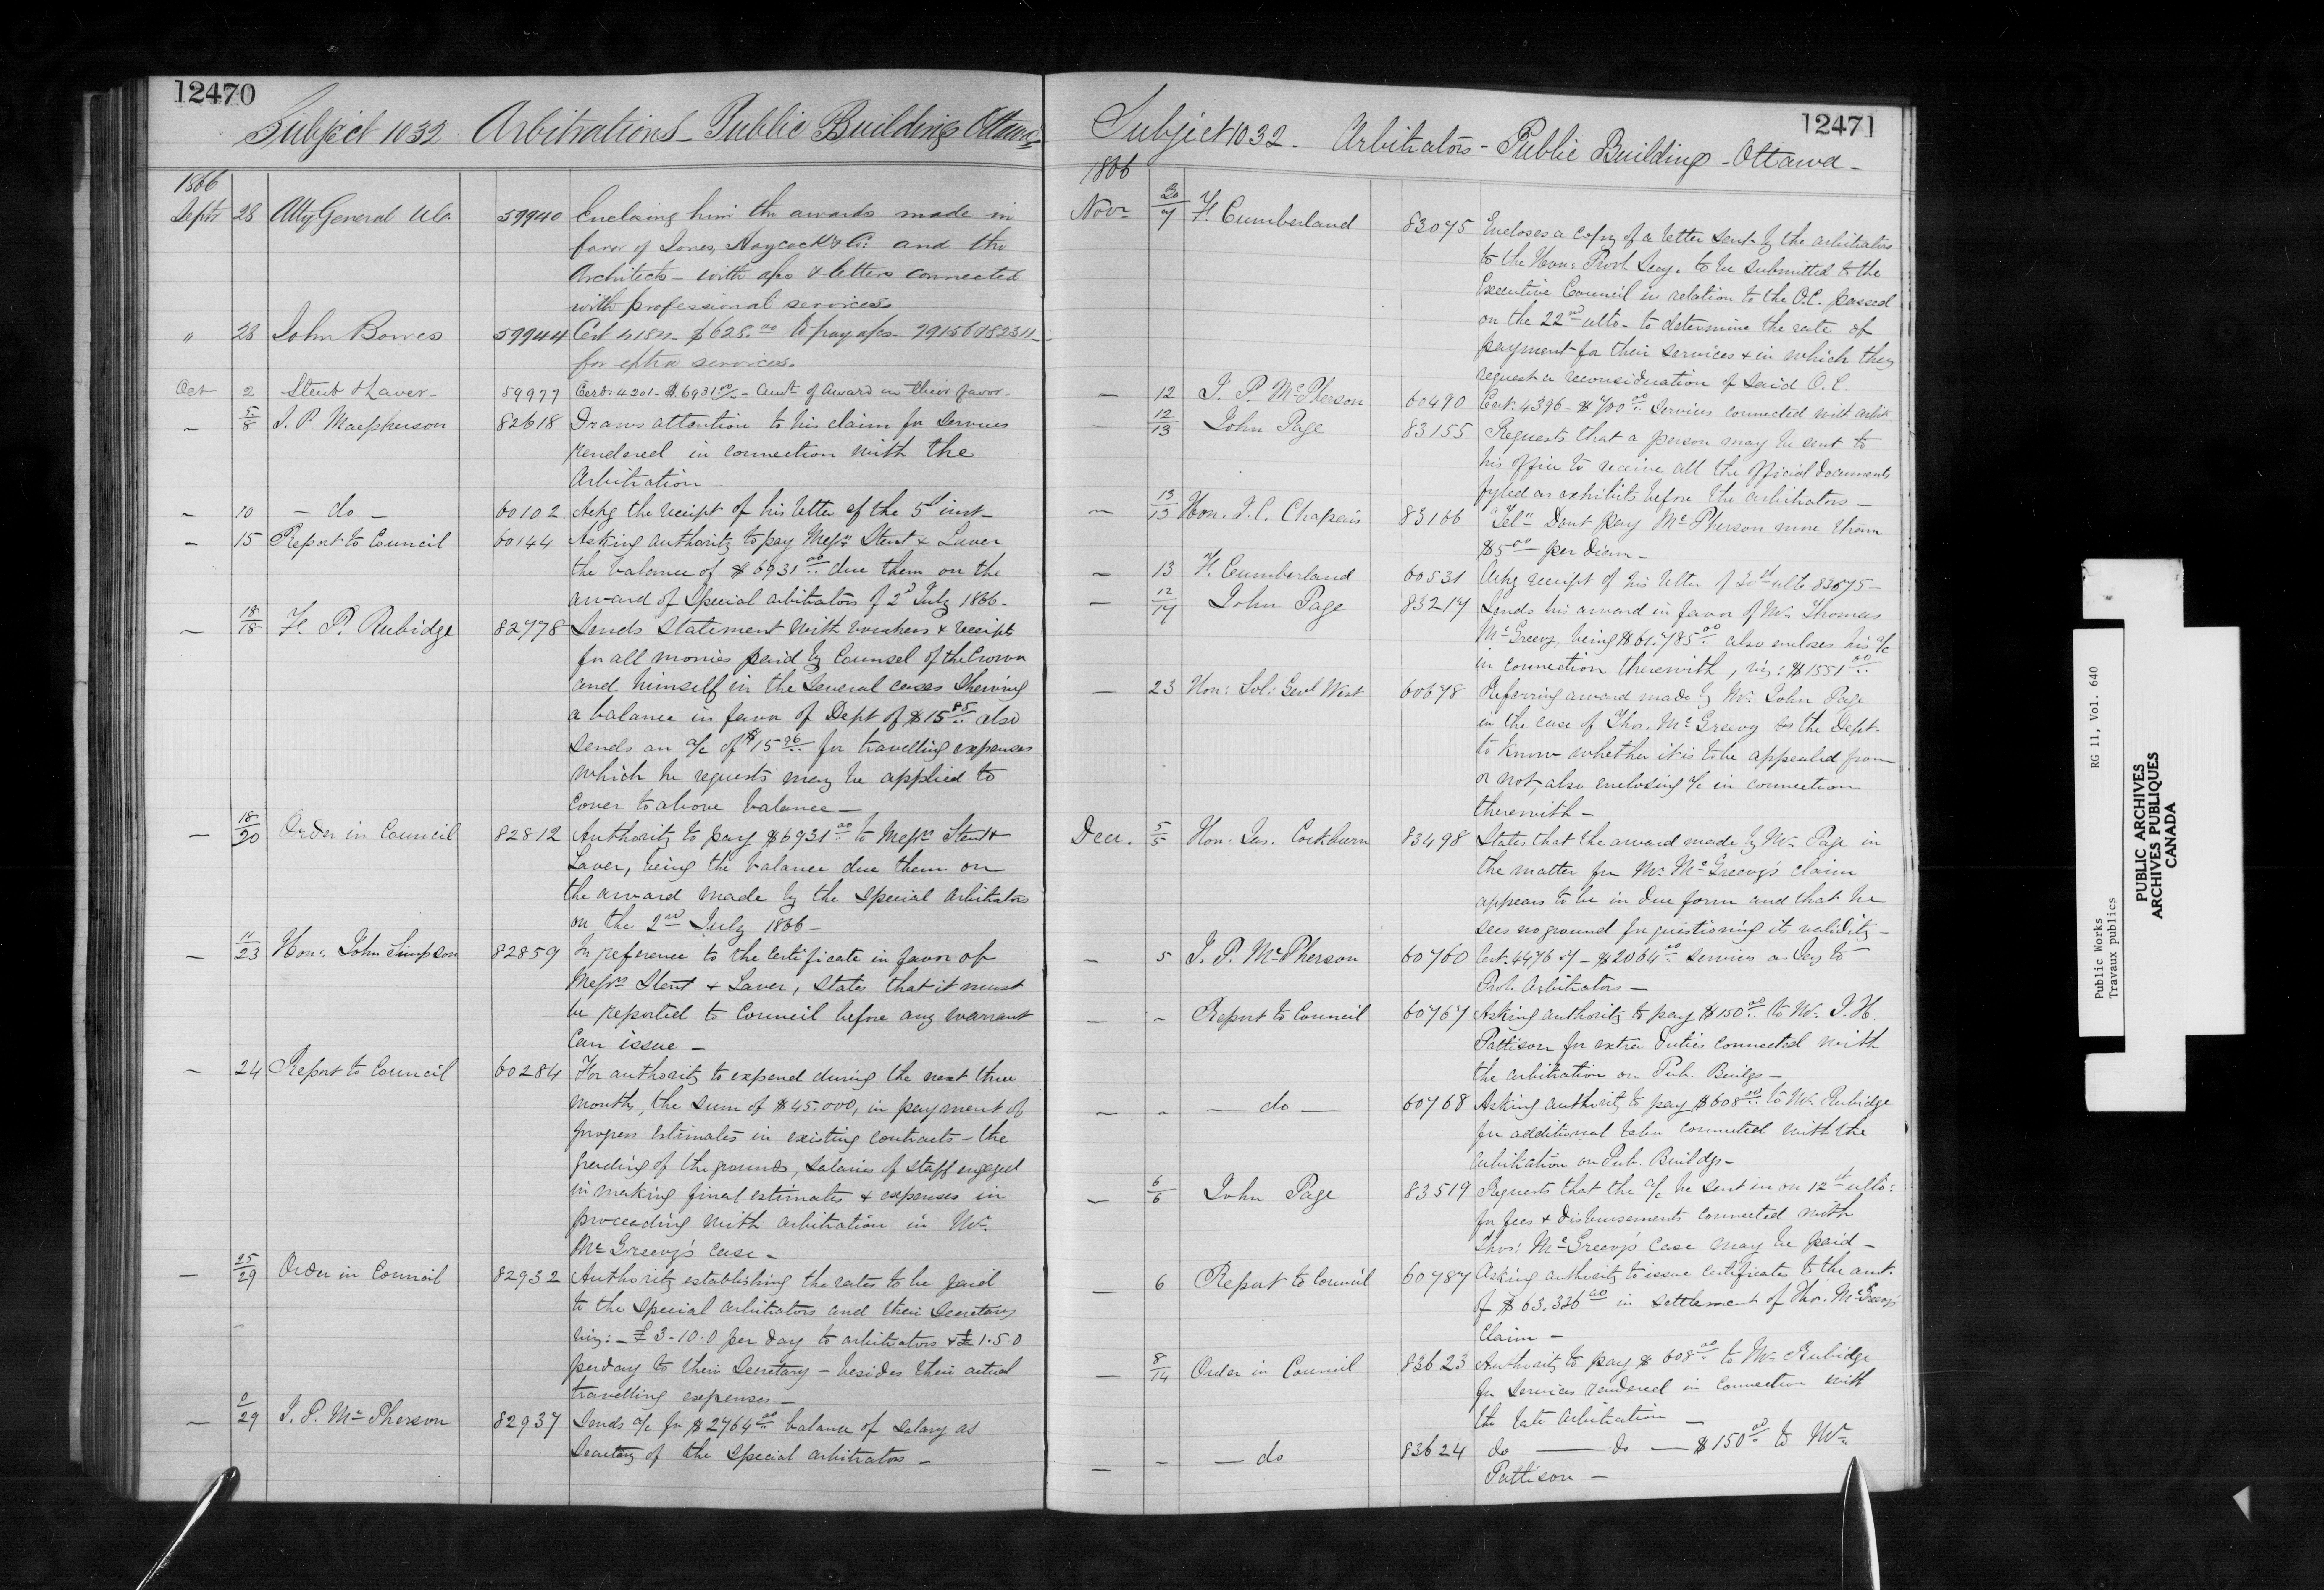 12470
Subject 1032 Arbitrations - Public Buildings Ottawa
1866
Sept 28 Atty General U.C. 59940 Enclosing him the awards made in
favor of Jones, Haycock & Co. and the
Architects - with a/cs & letters connected
with professional services
" 28 John Bowes 59944 Cert 4184 - $628.00 to pay a/cs
for extra services.
Oct 2 Stent & Laver - 59977 Cert: 4201 - $6931 00/ - Amt of award in their favor -
- 5/8 J. P. Macpherson 82618 Draws attention to his claim for services
rendered in connection with the
Arbitration
- 10 - do - 60102 Ackg the receipt of his letter of the 5th inst -
- 15 Report to Council 60144 Asking authority to pay Messrs Stent & Laver
the balance of $6931 00 due them on the
award of Special arbitrators of 2d July 1866 -
- 18/18 F. P. Rubidge 82778 Sends statement with vouchers & receipts
for all monies paid by Counsel of the Crown
and himself in the several cases shewing
a balance in favor of Dept of $15 85 also
sends an a/c of $15 96 for travelling expenses
which he requests may be applied to
cover to above balance -
- 18/20 Order in Council 82812 Authority to pay $6931 00 to Messrs Stent &
Laver, being the balance due them on
the award made by the Special Arbitrators
on the 2nd July 1866 -
- 11/23 Hon: John Simpson 82859 In reference to the certificate in favor of
Messrs Stent & Laver, states that it must
be reported to Council before any warrant
can issue -
- 24 Report to Council 60284 For authority to expend during the next three
months, the sum of $45.000, in payment of
progress estimates in existing contracts - the
grading of the grounds, salaries of staff engaged
in making final estimates & expenses in
proceeding with arbitration in Mr.
McGreevy's case -
- 25/29 Order in Council 82932 Authority establishing the rates to be paid
to the special arbitrators and their Secretary
viz: - £3-10.0 per day to arbitrators & £1.5.0
per day to their Secretary - besides their actual
travelling expenses -
- 29 J. P. McPherson 82937 Sends a/c for $2764 00 balance of salary as
Secretary of the special arbitrators -
12471
Subject 1032 - Arbitrators - Public Buildings - Ottawa -
1866
Novr 30/7 F. Cumberland 83075 Encloses a copy of a letter sent by the arbitrators
to the Hon: Provl Secy. to be submitted to the
Executive Council in relation to the O.C. passed
on the 22nd ulto - to determine the rate of
payment for their services & in which they
request a reconsideration of said O.C.
- 12 J. P. McPherson 60490 Cert. 4396 - $700 00 services connected with arbit
- 12/13 John Page 83155 Requests that a person may be sent to
his office to receive all the official documents
fyled as exhibits before the arbitrators -
- 13/13 Hon. J. C. Chapais 83166 "Tel" Dont pay McPherson more than
$5 00 per diem -
- 13 F. Cumberland 60531 Ackg receipt of his letter of 30th ulto 83075 -
- 12/17 John Page 83217 Sends his award in favor of Mr. Thomas
McGreevy, being $61.785 00 also encloses his a/c
in connection therewith, viz: $1551 00
- 23 Hon: Sol: Genl West 60678 Referring award made by Mr. John Page
in the case of Thos. McGreevy to the Dept.
to know whether it is to be appealed from
or not, also enclosing a/c in connection
therewith -
Decr. 5/5 Hon: Jas. Cockburn 83498 States that the award made by Mr Page in
the matter for Mr. McGreevy's claim
appears to be in due form and that he
sees no ground for questioning its validity -
- 5 J. P. McPherson 60760 Cert. - $2064 00 services as Secy to
Prov. Arbitrators -
- - Report to Council 60767 Asking authority to pay $150 00 to Mr. J. H.
Pattison for extra duties connected with
the arbitration on Pub. Buildgs -
- - - do - 60768 Asking authority to pay $608 00 to Mr. Rubidge
for additional labor connected with the
arbitration on Pub. Buildgs -
- 6/6 John Page 83519 Requests that the a/c he sent in on 12th ulto:
for fees & disbursements connected with
Thos: McGreevy's case may be paid -
- 6 Report to Council 60787 Asking authority to issue certificates to the amt.
of $63.336 00 in settlement of Thos. McGreevy's
claim -
- 8/14 Order in Council 83623 Authority to pay $608 00 to Mr. Rubidge
for services rendered in connection with
the late arbitration -
- - - do 83624 do - do - $150 00 to Mr.
Pattison -
Public Works RG 11, Vol. 640
Travaux publics
PUBLIC ARCHIVES
ARCHIVES PUBLIQUES
CANADA